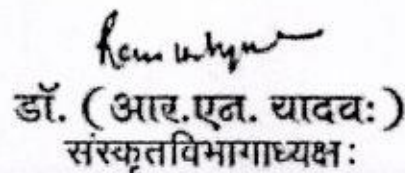 डॉ. ( आर.एन. यादवः )
संस्कृतविभागाध्यक्षः